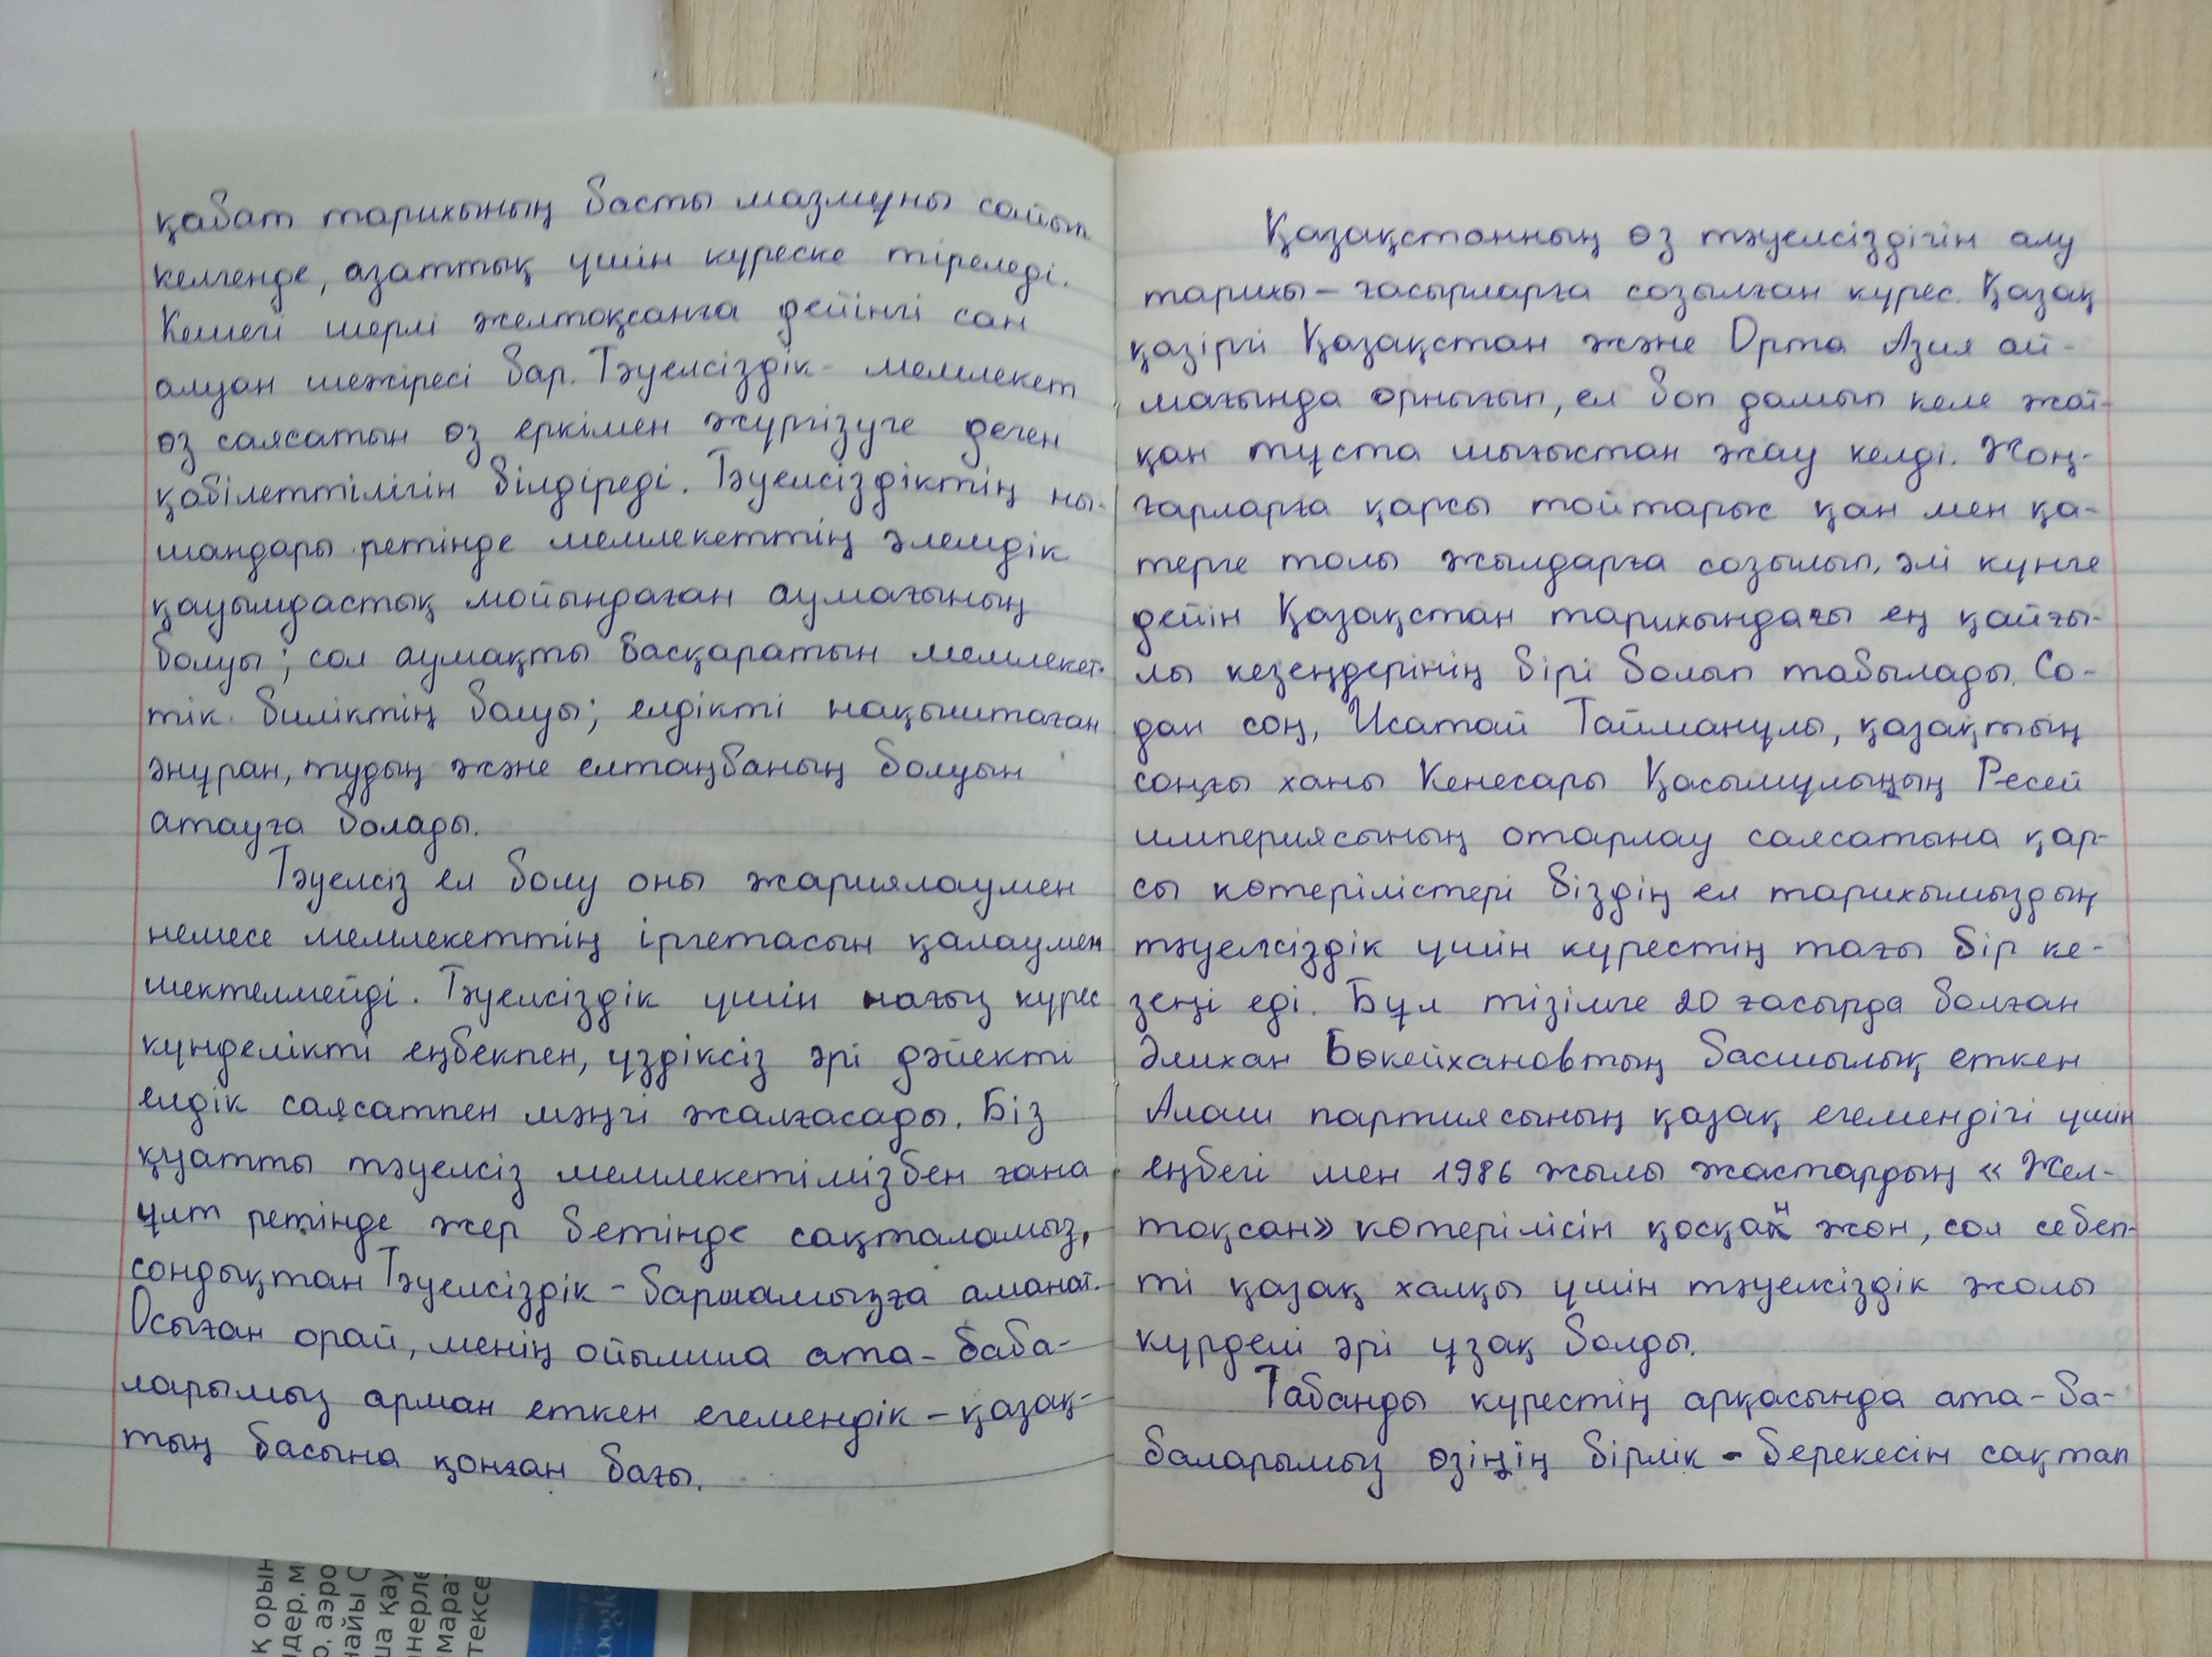 қабат тарихының басты мазмұны сайып
келгенде, азаттық үшін күреске тіреледі.
Кешегі шерлі желтоқсанға дейінгі сан
алуан шежіресі бар. Тәуелсіздік - мемлекет
өз саясатын өз еркімен жүргізуге деген
қабілеттілігін білдіреді. Тәуелсіздіктің ны-
шандары ретінде мемлекеттің әлемдік
қауымдастық мойындаған аумағының
болуы; сол аумақты басқаратын мемлекет-
тік биліктің болуы; елдікті нақыштаған
әнұран, тудың және елтаңбаның болуын
атауға болады.
Тәуелсіз ел болу оны жариялаумен
немесе мемлекеттің іргетасын қалаумен
шектелмейді. Тәуелсіздік үшін нағыз күрес
күнделікті еңбекпен, үздіксіз әрі дәйекті
елдік саясатпен мәңгі жалғасады. Біз
қуатты тәуелсіз мемлекетімізбен ғана
ұлт ретінде жер бетінде сақталамыз,
сондықтан Тәуелсіздік - баршамызға аманат.
Осыған орай, менің ойымша ата - баба-
ларымыз арман еткен егемендік - қазақ-
тың басына қонған бағы.
Қазақстанның өз тәуелсіздігін алу
тарихы – ғасырларға созылған күрес. Қазақ
қазіргі Қазақстан және Орта Азия ай-
мағында орнығып, ел боп дамып келе жат-
қан тұста шығыстан жау келді. Жоң-
ғарларға қарсы тойтарыс қан мен қа-
терге толы жылдарға созылып, әлі күнге
дейін Қазақстан тарихындағы ең қайғы-
лы кезеңдерінің бірі болып табылады. Со-
дан соң, Исатай Тайманұлы, қазақтың
соңғы ханы Кенесары Қасымұлыңың Ресей
империясының отарлау саясатына қар-
сы көтерілістері біздің ел тарихымыздың
тәуелсіздік үшін күрестің тағы бір ке-
зеңі еді. Бұл тізімге 20 ғасырда болған
Әлихан Бөкейхановтың басшылық еткен
Алаш партиясының қазақ егемендігі үшін
еңбегі мен 1986 жылы жастардың « Жел-
тоқсан» көтерілісін қосқан жөн, сол себеп-
ті қазақ халқы үшін тәуелсіздік жолы
күрделі әрі ұзақ болды.
Табанды күрестің арқасында ата - ба-
баларымыз өзіңің бірлік - берекесін сақтап
қ орын
ндер, м
р, аэро
найы С
ша қау
өнерле
марат
тексе